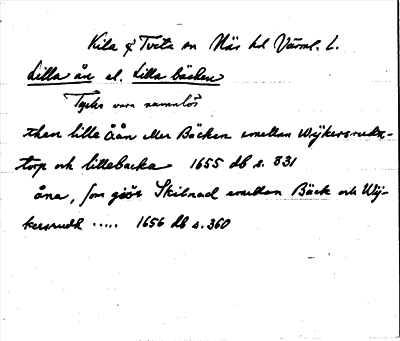 Kila & Tveta sn Näs hd Värml. L.
Lilla ån el. Lilla bäcken
Tycks vara namnlös
then lille åån eller Bäcken emellan Wijkersruds-
torp och lillebacka 1655 db s. 831
åna, som giör Skilnad emellan Bäck och Wij-
kersrudh ..... 1656 db s. 360